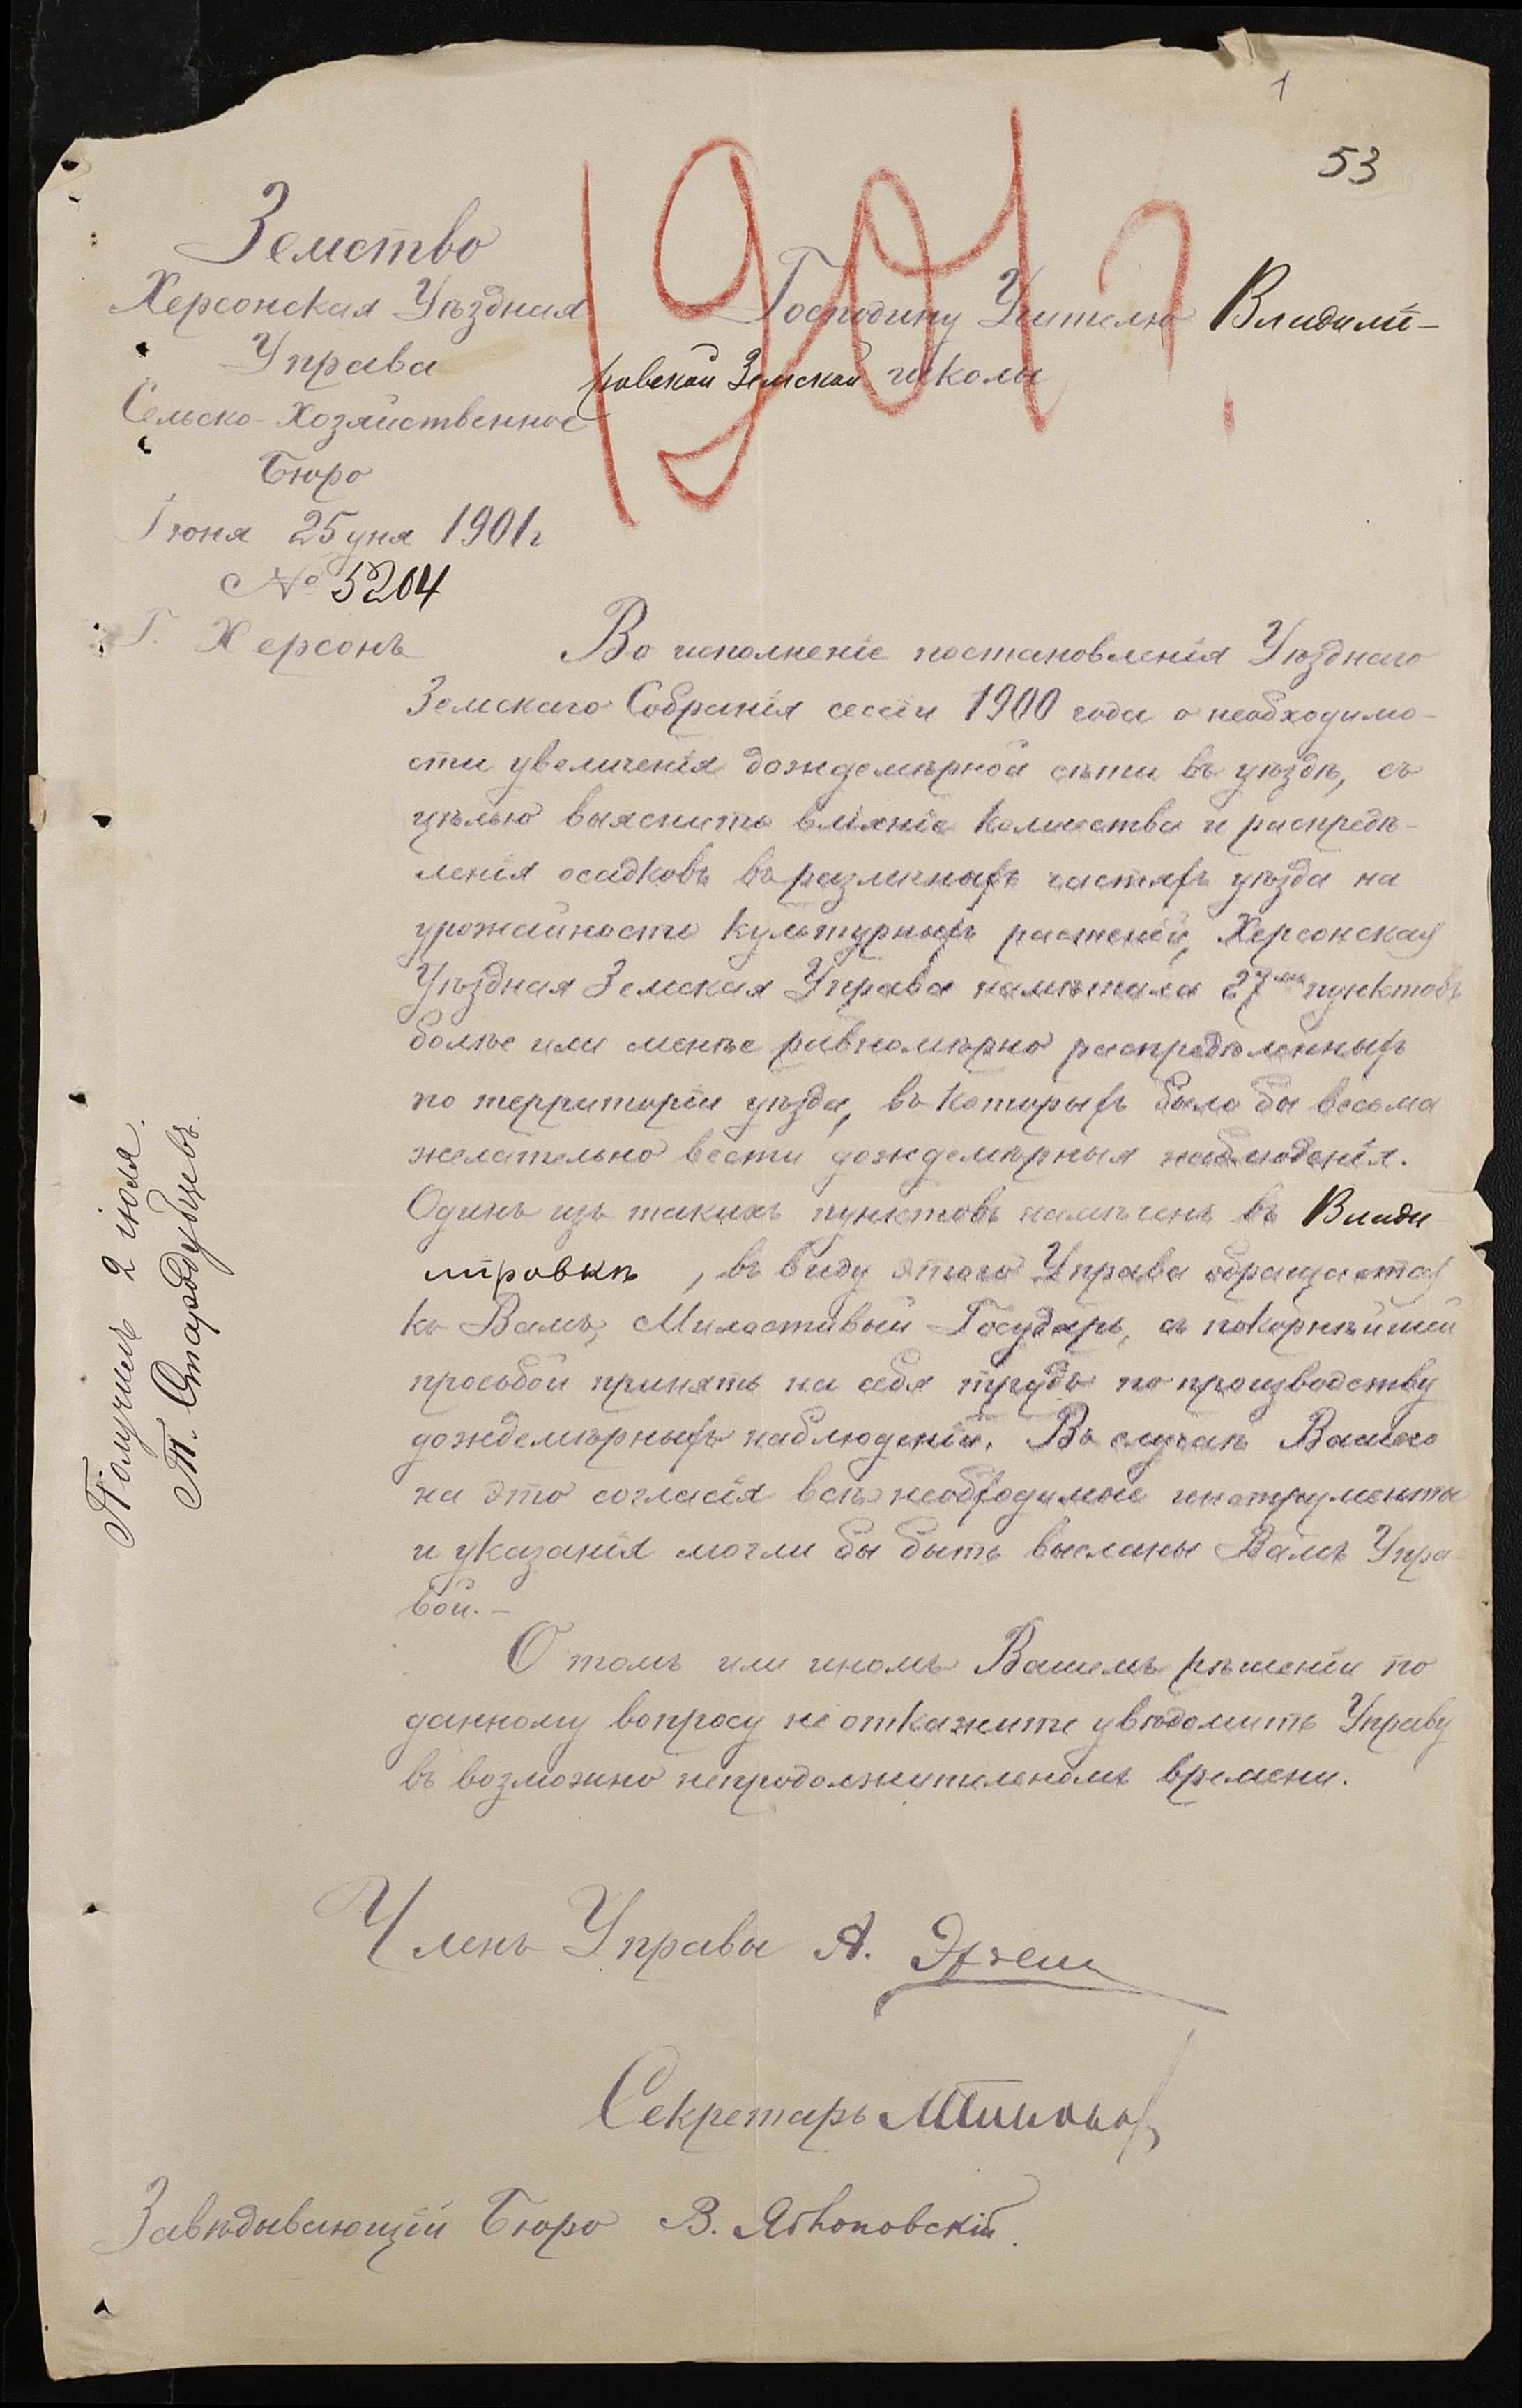 1
53
1901 г.
Земство
Херсонская Уѣздная
Управа
Сельско-Хозяйственное
Бюро
Іюня 25 дня 1901 г
№ 5204
Г. Херсонъ
Господину Учителю Владимі-
ровской Земской школы
Во исполненіе постановленія Уѣзднаго
Земскаго Собранія сессіи 1900 года о необходимо-
сти увеличенія дождемѣрной сѣти въ уѣздѣ, съ
цѣлью выяснить вліяніе количества и распредѣ-
ленія осадковъ въ различныхъ частяхъ уѣзда на
урожайность культурныхъ растеній, Херсонская
Уѣздная Земская Управа намѣтила 27 пунктовъ
болѣе или менѣе равномѣрно распредѣленныхъ
по территоріи уѣзда, въ которыхъ было бы весьма
желательно вести дождемѣрныя наблюденія.
Одинъ изъ такихъ пунктовъ намѣченъ въ Влади
міровкѣ, въ виду этого Управа обращается
къ Вамъ, Милостивый Государь, съ покорнѣйшей
просьбой принять на себя трудъ по производству
дождемѣрныхъ наблюденій. Въ случаѣ Вашего
на это согласія всѣ необходимые инструменты
и указанія могли бы быть высланы Вамъ Упра
вой. -
О томъ или иномъ Вашемъ рѣшеніи по
данному вопросу не откажите увѣдомить Управу
въ возможно непродолжительномъ времени.
Членъ Управы А.
Секретарь
Завѣдывающій Бюро В. Яблоновскій.
Получилъ 2 іюля.
Т. Стародубцевъ.